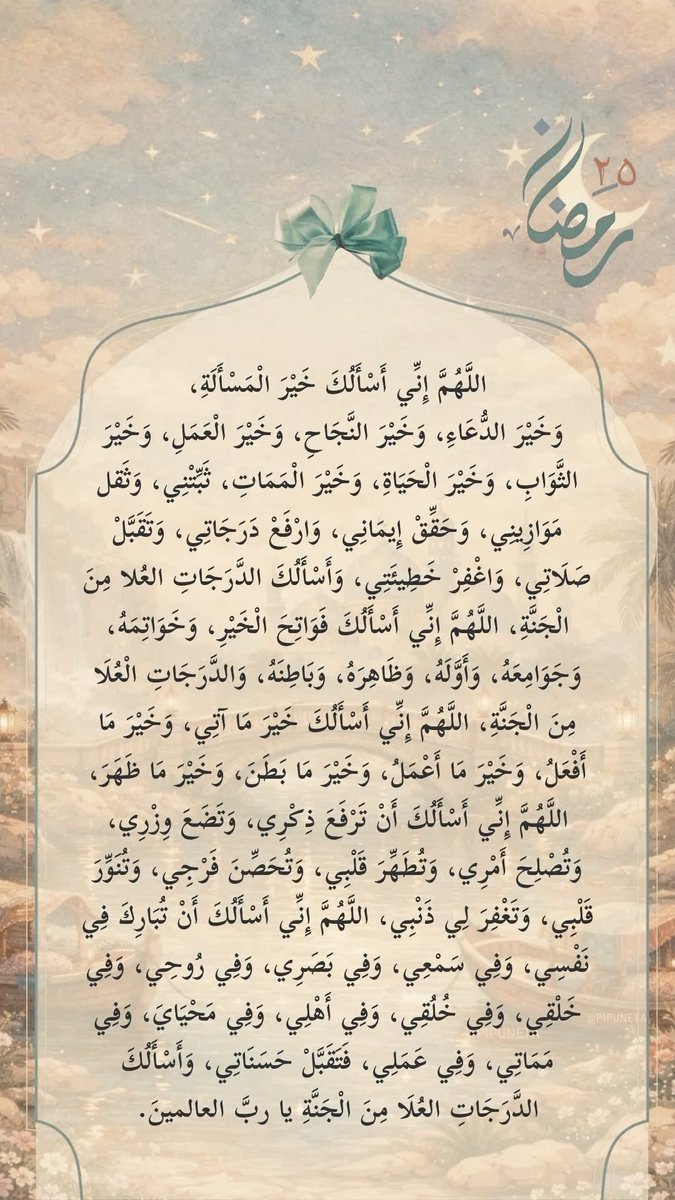 ٢٥
رمضان
اللَّهُمَّ إِنِّي أَسْأَلُكَ خَيْرَ الْمَسْأَلَةِ،
وَخَيْرَ الدُّعَاءِ، وَخَيْرَ النَّجَاحِ، وَخَيْرَ الْعَمَلِ، وَخَيْرَ
الثَّوَابِ، وَخَيْرَ الْحَيَاةِ، وَخَيْرَ الْمَمَاتِ، ثَبِّتْنِي، وَثَقل
مَوَازِينِي، وَحَقِّقْ إِيمَانِي، وَارْفَعْ دَرَجَاتِي، وَتَقَبَّلْ
صَلَاتِي، وَاغْفِرْ خَطِيئَتِي، وَأَسْأَلُكَ الدَّرَجَاتِ العُلا مِنَ
الْجَنَّةِ، اللَّهُمَّ إِنِّي أَسْأَلُكَ فَوَاتِحَ الْخَيْرِ، وَخَوَاتِمَهُ،
وَجَوَامِعَهُ، وَأَوَّلَهُ، وَظَاهِرَهُ، وَبَاطِنَهُ، وَالدَّرَجَاتِ الْعُلَا
مِنَ الْجَنَّةِ، اللَّهُمَّ إِنِّي أَسْأَلُكَ خَيْرَ مَا آتِي، وَخَيْرَ مَا
أَفْعَلُ، وَخَيْرَ مَا أَعْمَلُ، وَخَيْرَ مَا بَطَنَ، وَخَيْرَ مَا ظَهَرَ،
اللَّهُمَّ إِنِّي أَسْأَلُكَ أَنْ تَرْفَعَ ذِكْرِي، وَتَضَعَ وِزْرِي،
وَتُصْلِحَ أَمْرِي، وَتُطَهِّرَ قَلْبِي، وَتُحَصِّنَ فَرْجِي، وَتُنَوِّرَ
قَلْبِي، وَتَغْفِرَ لِي ذَنْبِي، اللَّهُمَّ إِنِّي أَسْأَلُكَ أَنْ تُبَارِكَ فِي
نَفْسِي، وَفِي سَمْعِي، وَفِي بَصَرِي، وَفِي رُوحِي، وَفِي
خَلْقِي، وَفِي خُلُقِي، وَفِي أَهْلِي، وَفِي مَحْيَايَ، وَفِي
مَمَاتِي، وَفِي عَمَلِي، فَتَقَبَّلْ حَسَنَاتِي، وَأَسْأَلُكَ
الدَّرَجَاتِ العُلَا مِنَ الْجَنَّةِ يا ربَّ العالمينَ.
@PIPUNETA